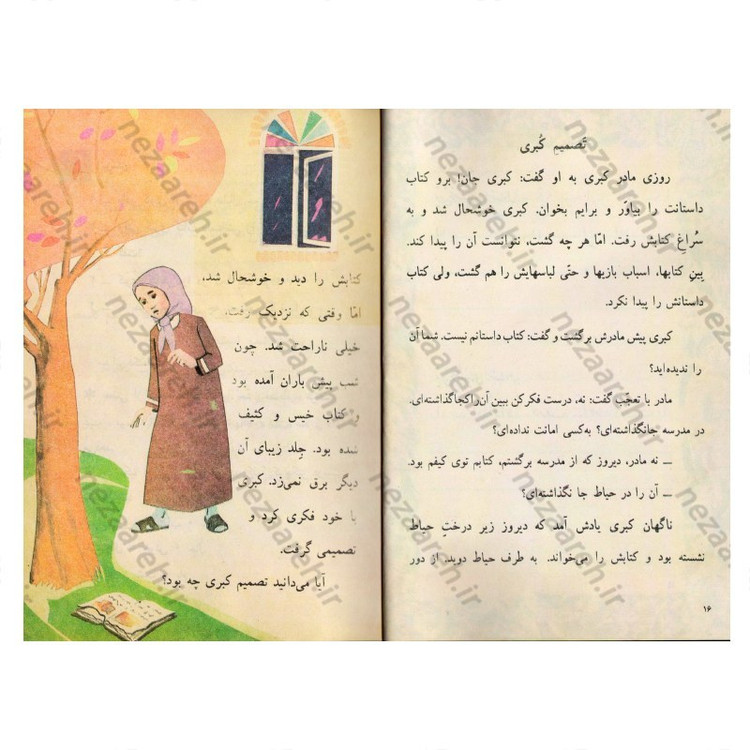 تَصمیمِ کُبری
روزی مادرِ کبری به او گفت: کبری جان! برو کتاب
داستانت را بیاوَر و برایم بخوان. کبری خوشحال شد و به
سُراغِ کتابش رفت. امّا هر چه گشت، نتوانست آن را پیدا کند.
بینِ کتابها، اسباب بازیها و حتّی لباسهایش را هم گشت، ولی کتاب
داستانش را پیدا نکرد.
کبری پیش مادرش برگشت و گفت: کتاب داستانم نیست. شما آن
را ندیده‌اید؟
مادر با تعجّب گفت: نه، درست فکر کن ببین آن را کجا گذاشته‌ای.
در مدرسه جا نگذاشته‌ای؟ به کسی امانت نداده‌ای؟
ـ نه مادر، دیروز که از مدرسه برگشتم، کتابم توی کیفم بود.
ـ آن را در حیاط جا نگذاشته‌ای؟
ناگهان کبری یادش آمد که دیروز زیر درختِ حیاط
نشسته بود و کتابش را می‌خواند. به طرف حیاط دوید. از دور
۱۶
کتابش را دید و خوشحال شد.
امّا وقتی که نزدیک رفت،
خیلی ناراحت شد. چون
شب پیش باران آمده بود
و کتاب خیس و کثیف
شده بود. جِلد زیبای آن
دیگر برق نمی‌زد. کبری
با خود فکری کرد و
تصمیمی گرفت.
آیا می‌دانید تصمیم کبری چه بود؟
nezaareh.ir